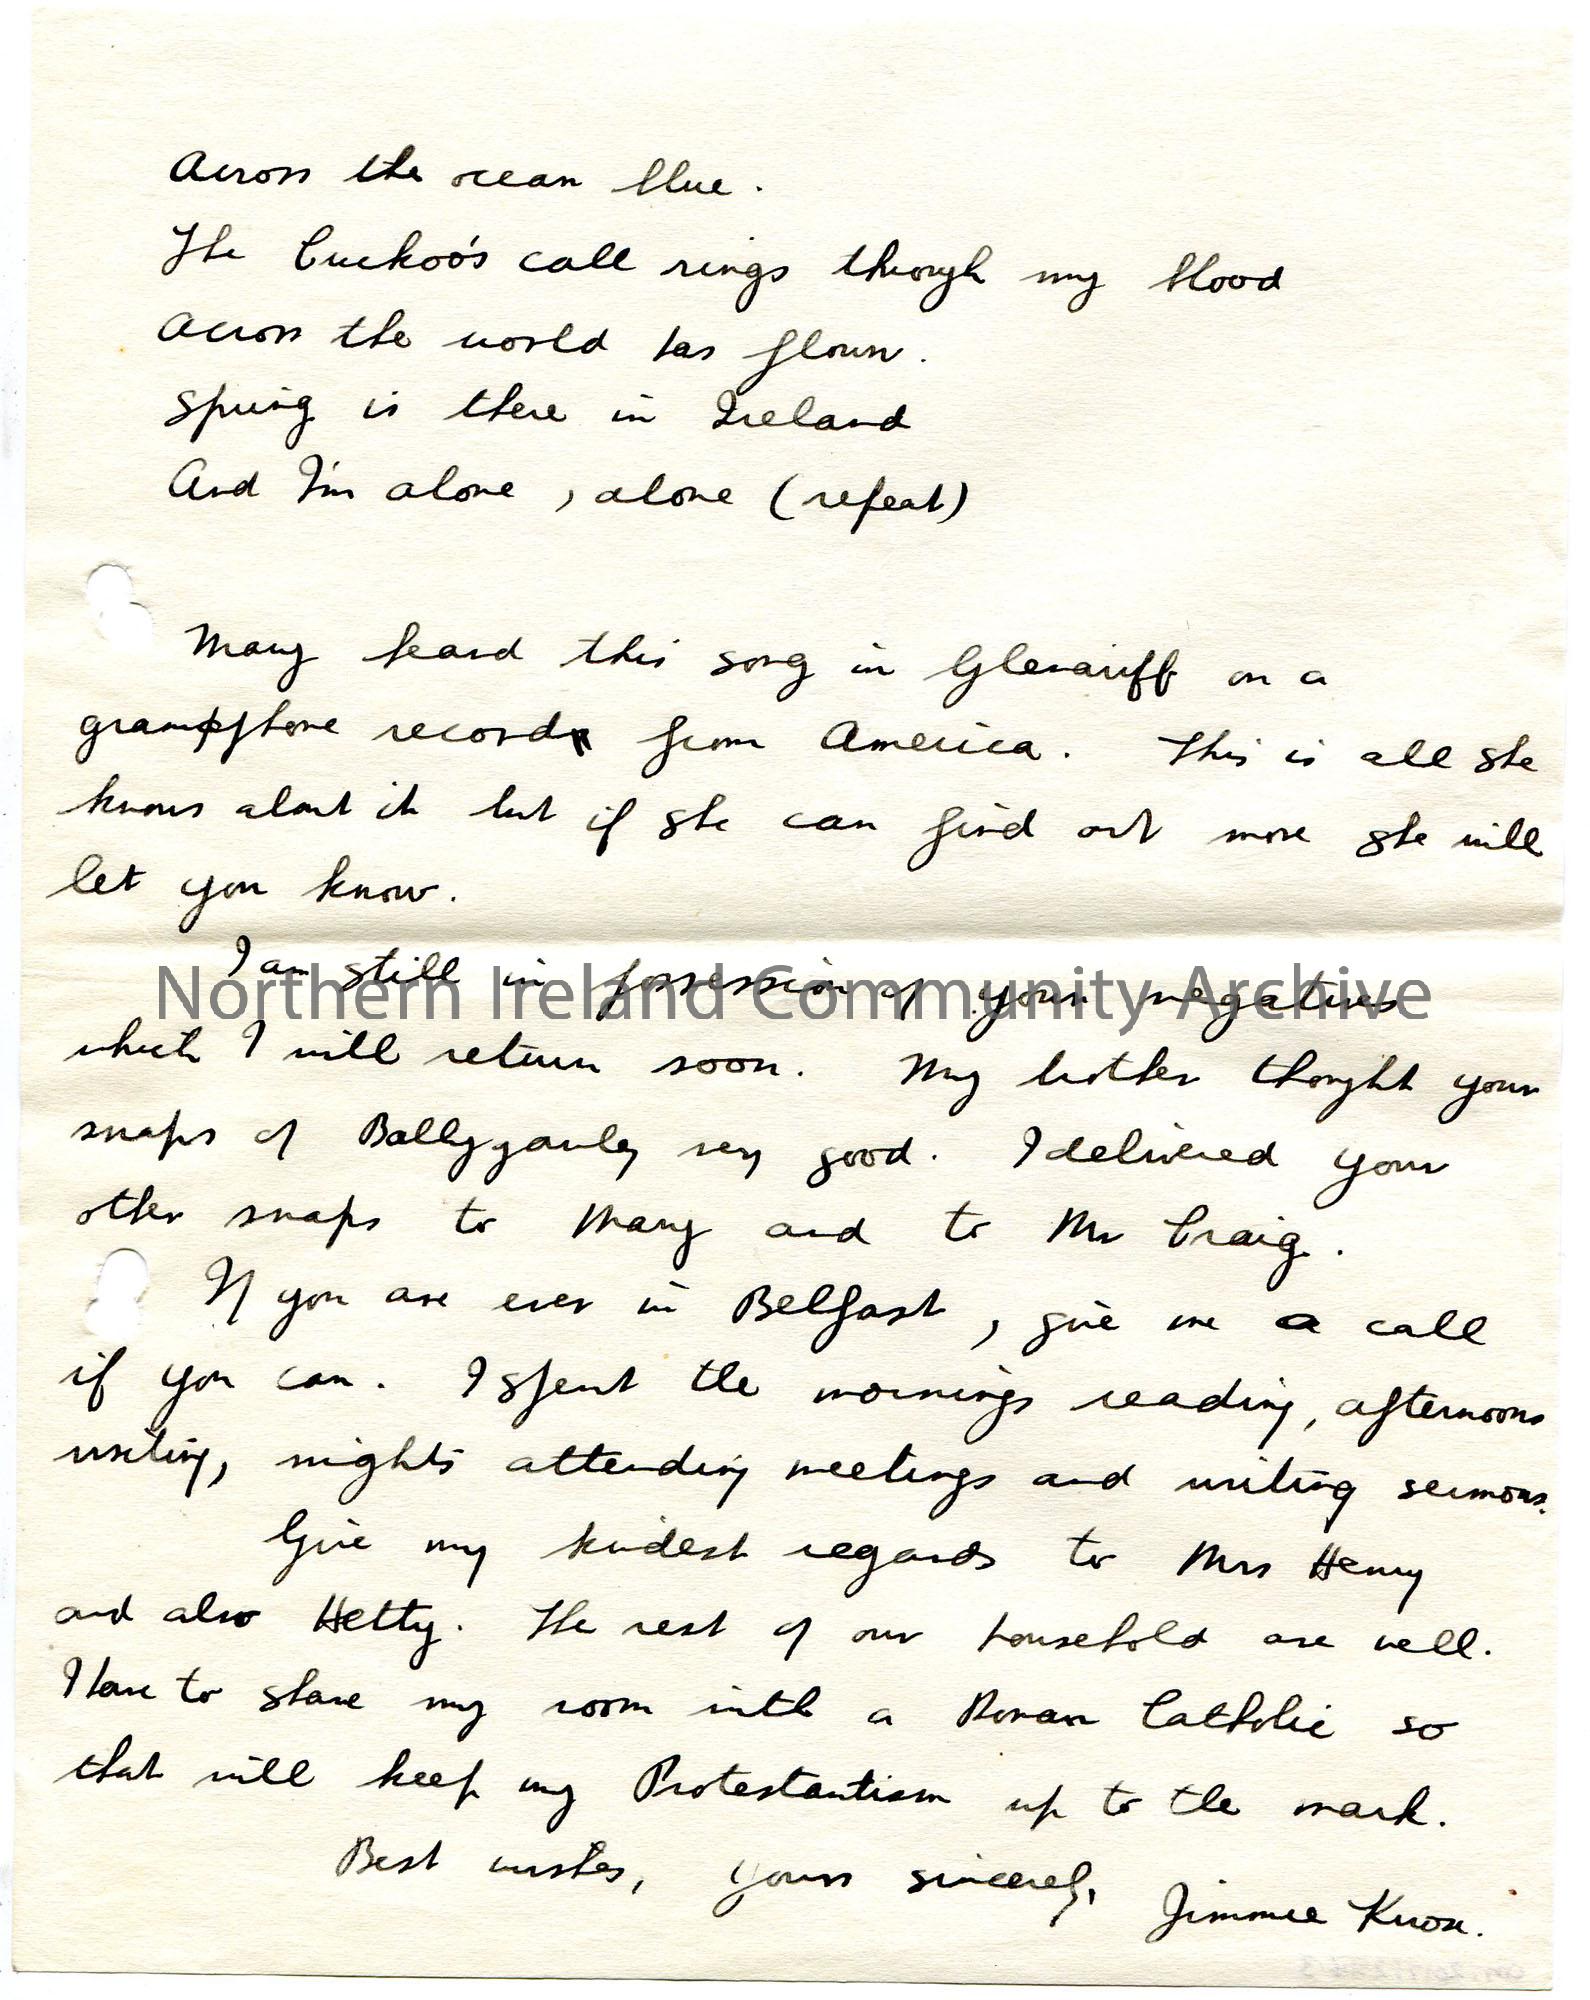 Across the ocean blue.
The Cuckoo's call rings through my blood
Across the world has flown.
Spring is there in Ireland
And I'm alone, alone (repeat)
Mary heard this song in Glenariff on a
gramophone record from America. This is all she
knows about it but if she can find out more she will
let you know.
I am still in possession of your negatives
Northern Ireland Community Archive
which I will return soon. My brother thought your
snaps of Ballygawley very good. I delivered your
other snaps to Mary and to Mr Craig.
If you are ever in Belfast, give me a call
if you can. I spent the mornings reading, afternoons
visiting, nights attending meetings and writing sermons.
Give my kindest regards to Mrs Henry
and also Hetty. The rest of our household are well.
I have to share my room with a Roman Catholic so
that will keep my Protestantism up to the mark.
Best wishes, yours sincerely, Jimmie Knox.